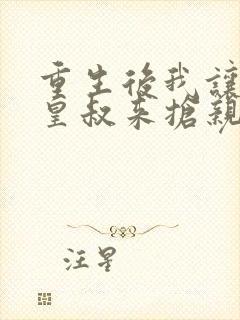 重生後我讓
皇叔来搶親
汪星